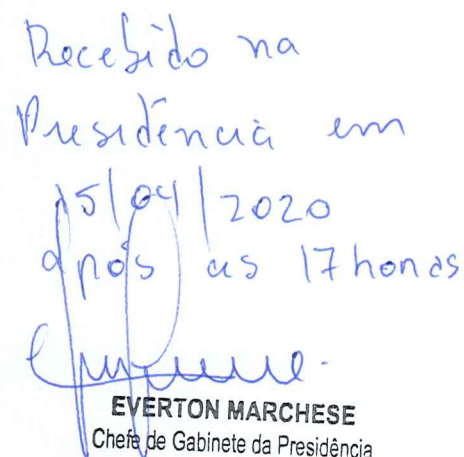 Recebido na
Presidência em
15/04/2020
após as 17 horas
EVERTON MARCHESE
Chefe de Gabinete da Presidência